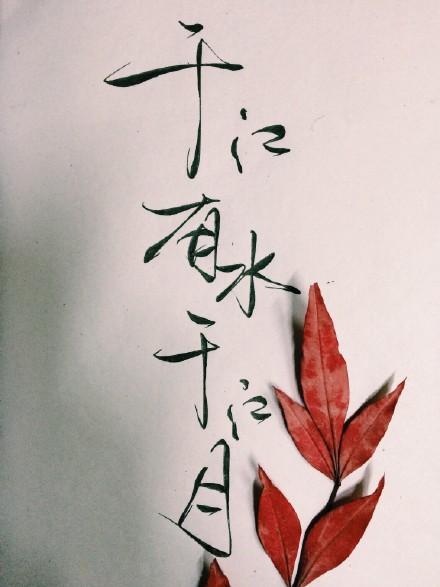 千江有水千江月